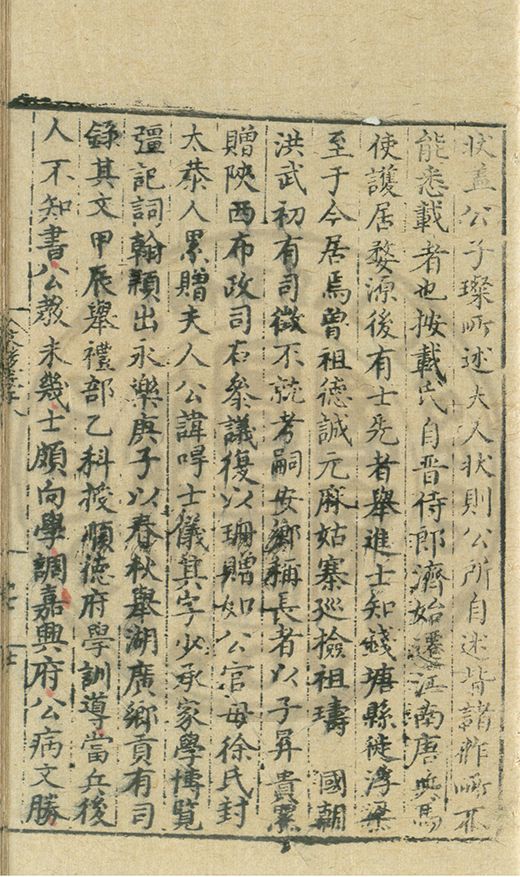 狀盖公子璨所述夫人狀則公所自述皆諸作所不
能悉載者也按載氏自晋侍郎濟始遷江南唐兵馬
使護居婺源後有士先者舉進士知錢塘縣徙浮梁
至于今居焉曾祖德誠元麻姑寨廵檢祖璹 國朝
洪武初有司徴不就考嗣安鄉稱長者以子昇貴累
贈陝西布政司右叅議復以珊贈如公官母徐氏封
太恭人累贈夫人公諱㖡士儀其字少承家學博覽
彊記詞翰穎出永樂庚子以春秋舉湖廣鄉貢有司
錄其文甲辰舉禮部乙科授順德府學訓導當兵後
人不知書公敎未幾士頗向學調嘉興府公病文勝